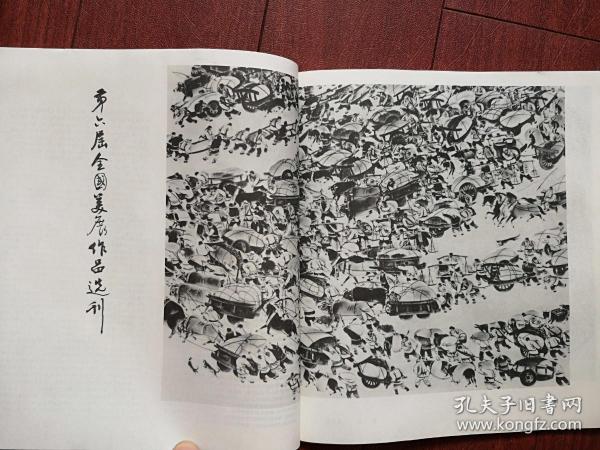 第六届全國美展作品选刊
孔夫子旧書网
www.kongfz.com